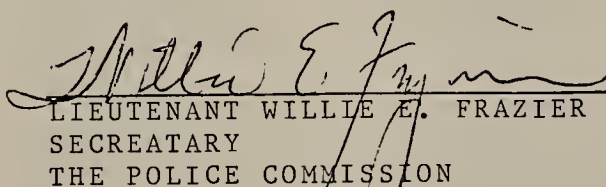 Willie E. Frazier
LIEUTENANT WILLIE E. FRAZIER
SECREATARY
THE POLICE COMMISSION